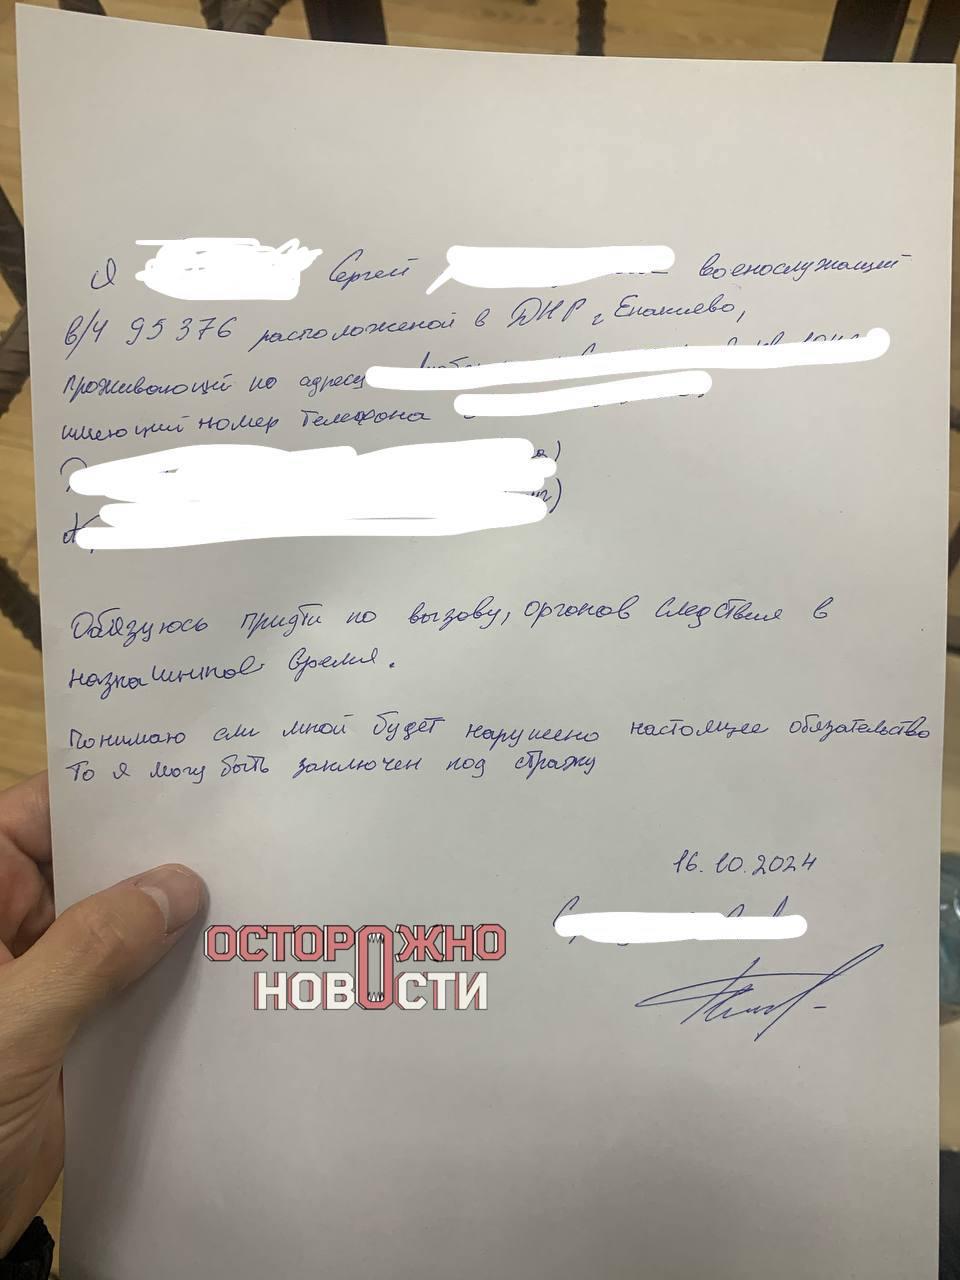 Я Сергей военослужащий
в/ч 95376 расположеной в ДНР г Енакиево,
проживающий по адресу
имеющий номер телефона
Обязуюсь придти по вызову, органов следствия в
время.
Понимаю если мной будет нарушено настоящее обязательство
то я могу быть заключен под стражу
16.10.2024
ОСТОРОЖНО
НОВОСТИ